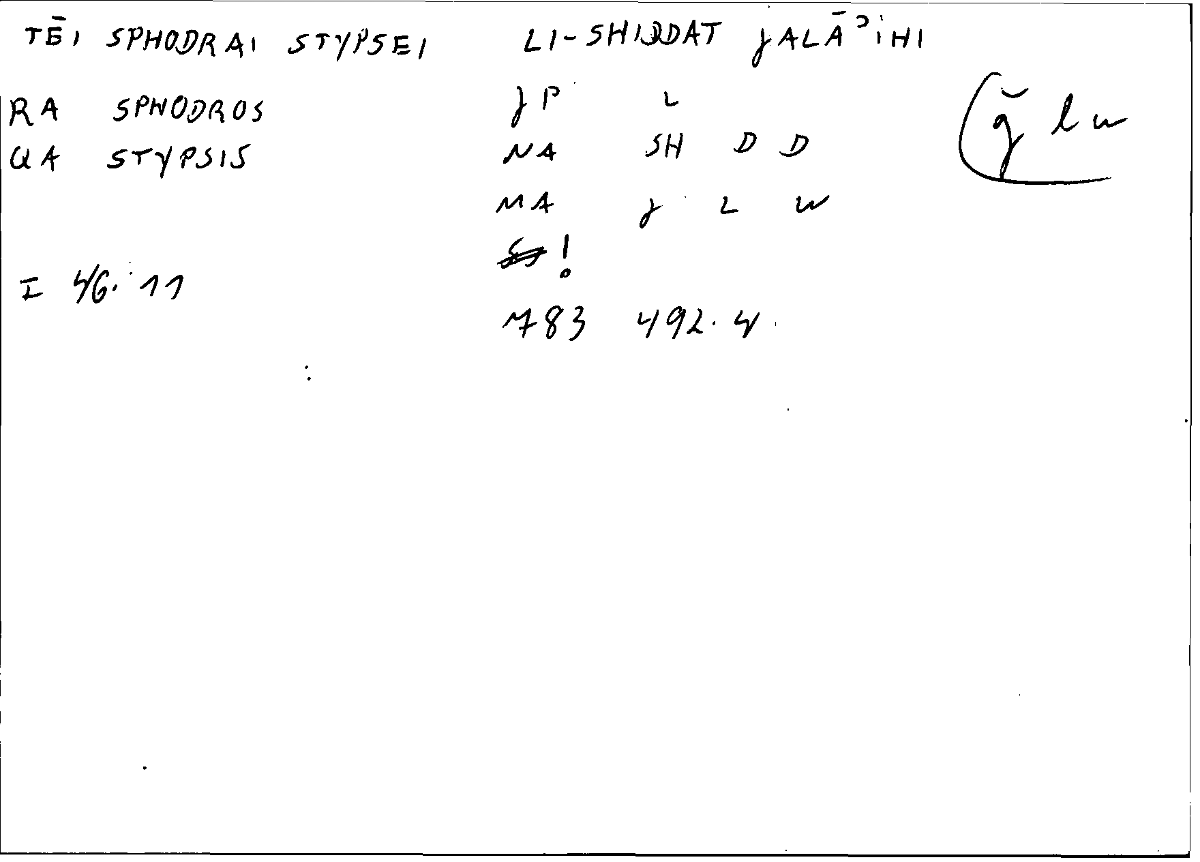 TĒI SPHODRAI STYPSEI LI-SHIDDAT JALĀʾIHI
RA SPHODROS JP L
QA STYPSIS NA SH D D
MA J L W
!
I 4/6.11 783 492.4
ǧ l w